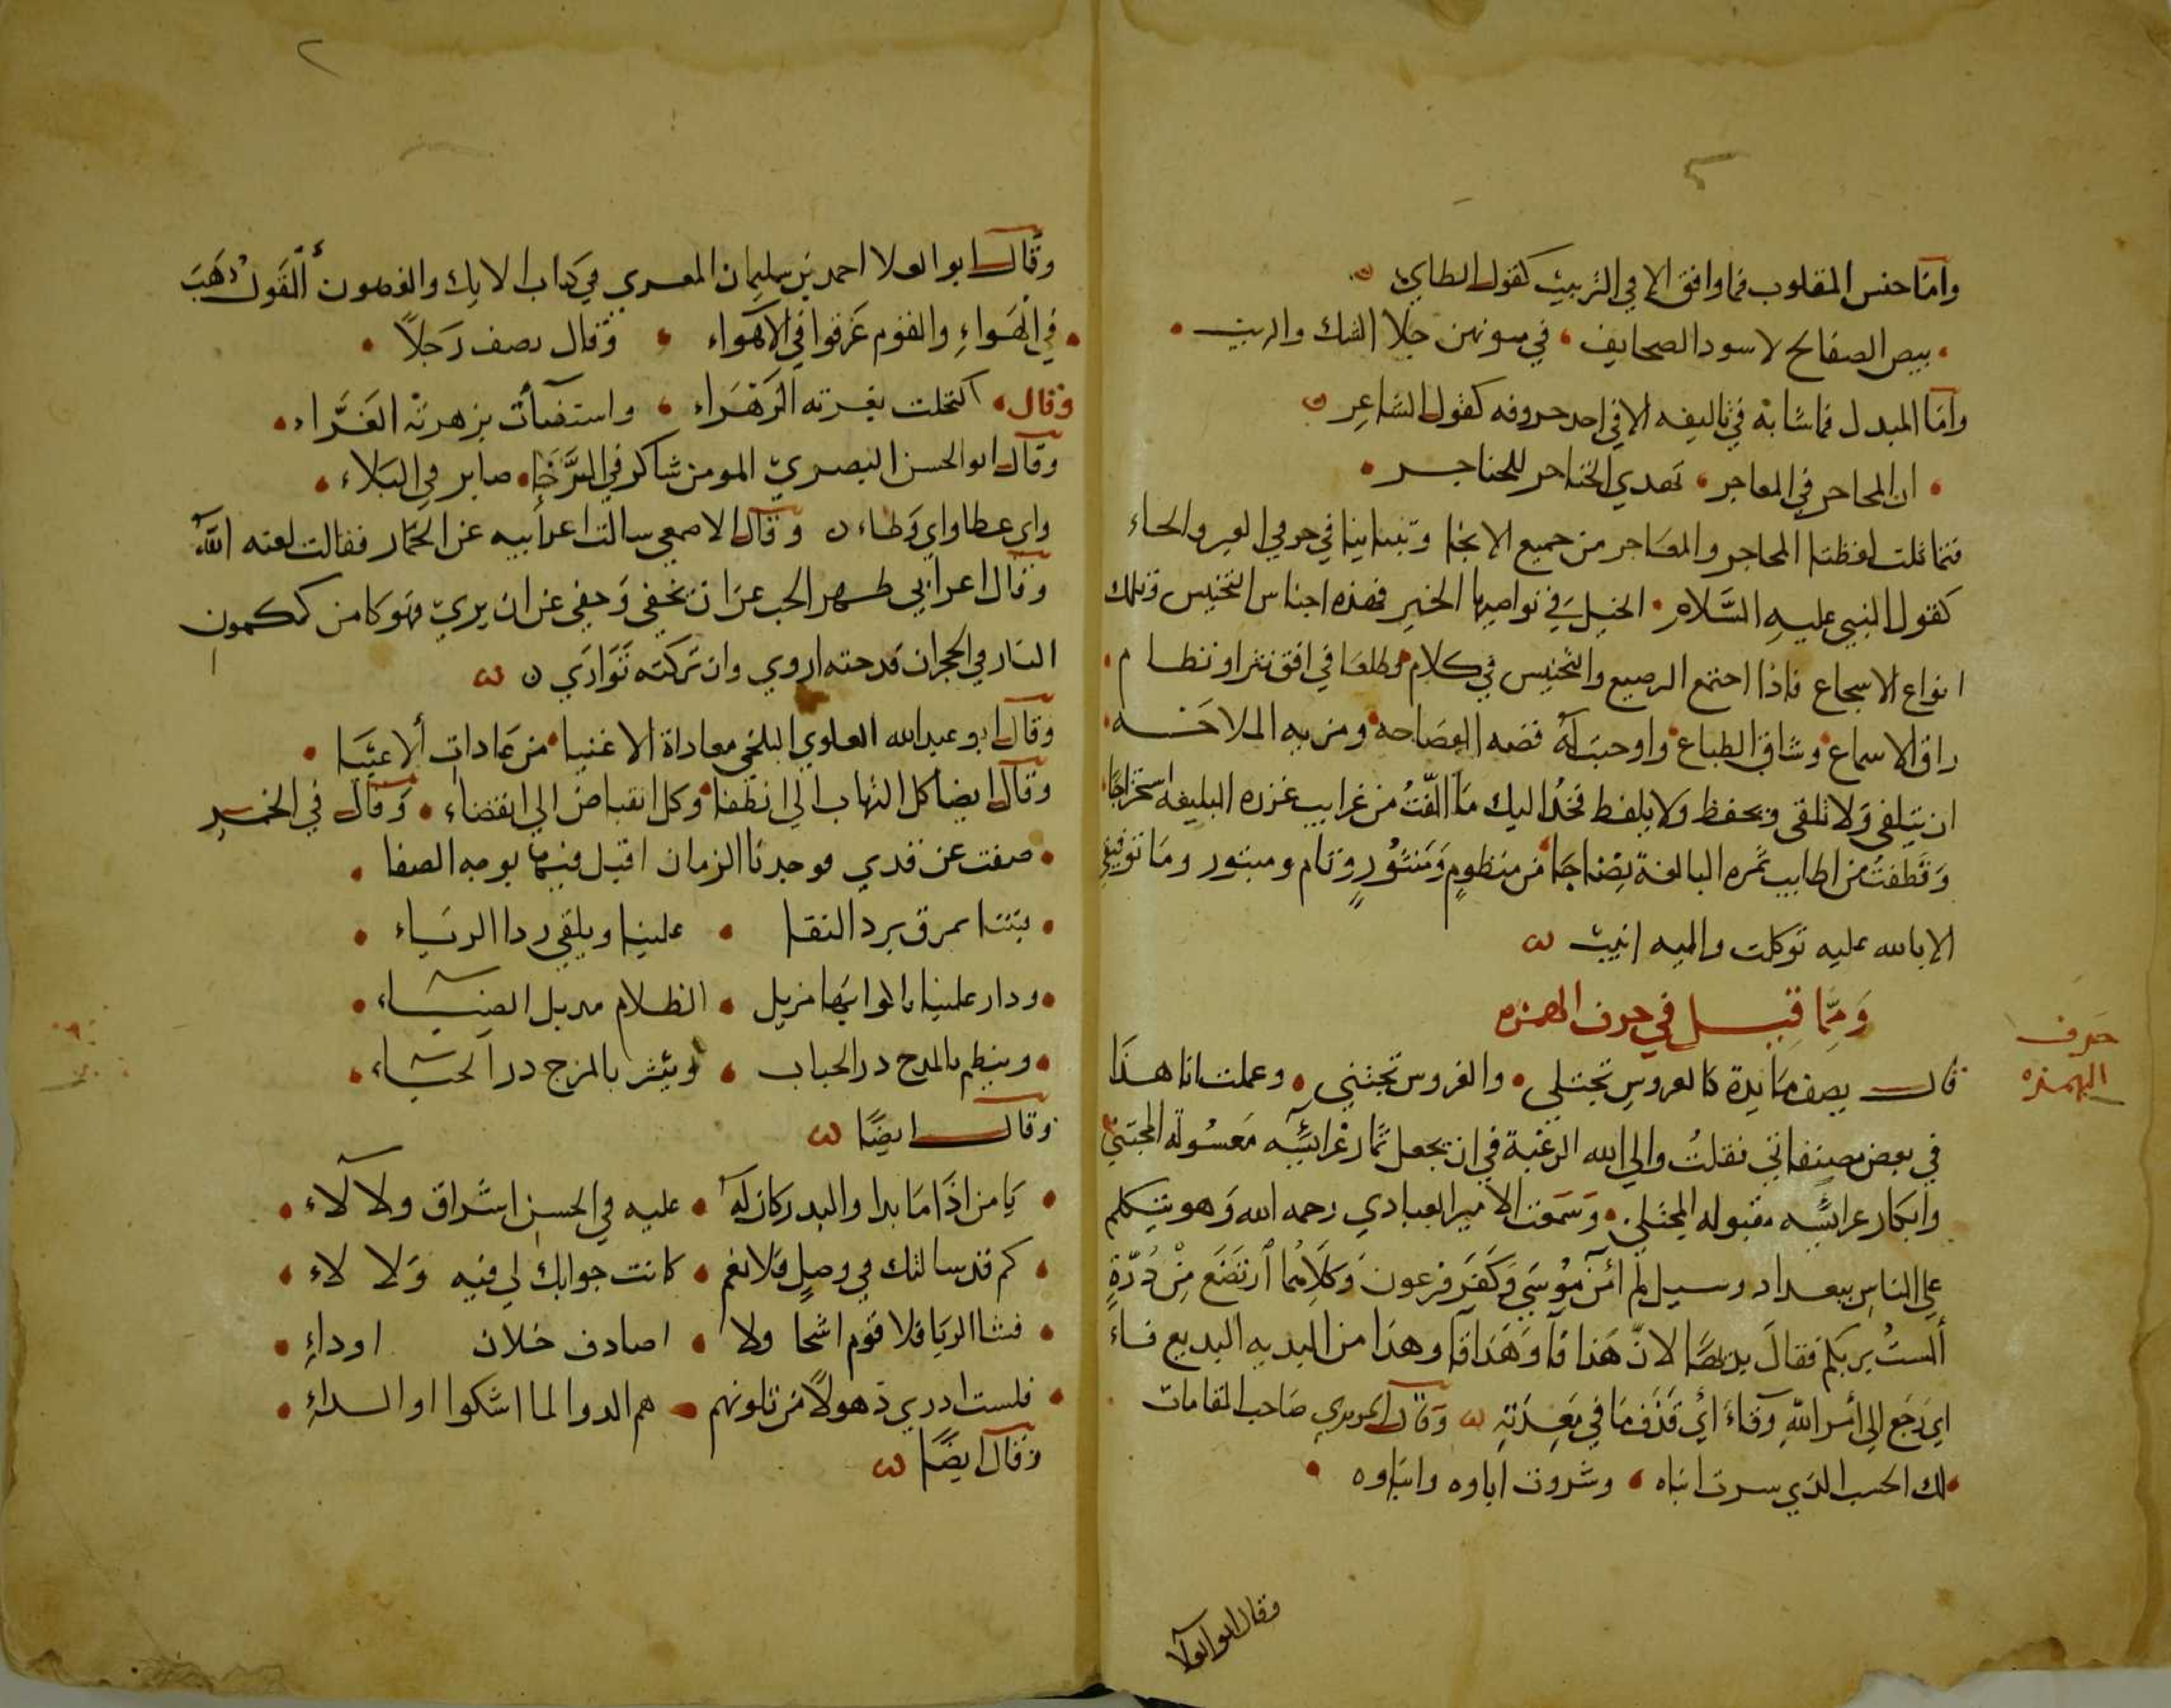 واما جنس المقلوب فما وافق الا في الترتيب كقول الطاي
بيض الصفائح لا سود الصحايف في متونهن جلا الشك والريب
واما المبدل فما شابه في تاليفه الا في احد حروفه كقول الشاعر
ان المحاجر في المعاجر تهدي الخناجر للحناجر
فتماثلت لفظتا المحاجر والمعاجر من جميع الانحا وتباينا في حرفي العير والحاء
كقول النبي عليه السلام الخيل في نواصيها الخير فهذه اجناس التجنيس وتلك
انواع الاسجاع فاذا اجتمع الرصيع والتجنيس في كلام وطلعا في افق نثر او نظام
راق الاسماع وشاق الطباع واوجبت له قضه الفصاحه ومزيه الملاحه
ان يتلقى ولا تلقى ويحفظ ولا يلفظ فخذ اليك ما الفت من غرايب غرره البليغه استخراجا
وقطفت من اطايب ثمره البالغة نضاجا من منظوم ومنثور وتام ومبتور وما توفيقي
الا بالله عليه توكلت واليه انيب
ومما قيل في حرف الهمزه
حرف
الهمزه
قال يصف مايدة كالعروس تجتلى والغروس تجتنى وعملت انا هذا
في بعض مصنفاتي فقلت والى الله الرغبة في ان يجعل ثمار غرائسه معسولة المجتنى
وابكار عرائسه مقبوله المجتلى وسمعت الامير العبادي رحمه الله وهو يتكلم
على الناس ببغداد وسيل لم آمن موسى وكفر فرعون وكلاهما ارتضع من درة
ألست بربكم فقال بديها لان هذا فآ وهذا فآ وهذا من البديه البديع فاء
اي رجع الى أمر الله وفاء اي قذف ما في معدته وقال الحريري صاحب المقامات
لك الحسب الذي سرت انباه وشرفت اباوه وابناوه
وقال ابو العلا
وقال ابو العلا احمد بن سليمان المعري في كتاب الايك والغصون ألقول ذهب
في الهواء والقوم غرقوا في الاهواء وقال يصف رجلا
وقال اكتحلت بغرته الزهراء واستضأت بزهرته الغراء
وقال ابو الحسن البصري المومن شاكر في الرخاء صابر في البلاء
واي عطا واي وطاء وقال الاصمعي سالت اعرابيه عن الخمار فقالت لعنه الله
وقال اعرابي ظهر الحب عن ان يخفى وخفي عن ان يرى فهو كامن ككمون
النار في الحجر ان قدحته اروي وان تركته توارى
وقال ابو عبد الله العلوي البلخي معاداة الاغنيا من عادات ألاغبيا
وقال ايضا كل التهاب الى انطفا وكل انقباض الى انقضاء وقال في الخمر
صفت عن قذي فوجدنا الزمان اقبل فيها بوجه الصفا
بتنا نمزق برد النقا علينا ويلقي ردا الرياء
ودار علينا بالوانها مزيل الظلام مديل الضياء
وينظم بالمدح در الحباب وينثر بالمزج در الحياء
وقال ايضا
يا من اذا ما بدا والبدر كان له عليه في الحسن اشراق ولا لاء
كم قد سالتك في وصل فلا نعم كانت جوابك لي فيه ولا لاء
فشا الريا فلا قوم اشحا ولا اصادف خلان اوداء
فلست ادري ذهولا من تلونهم هم الدوا لما اشكوا او الداء
وقال ايضا